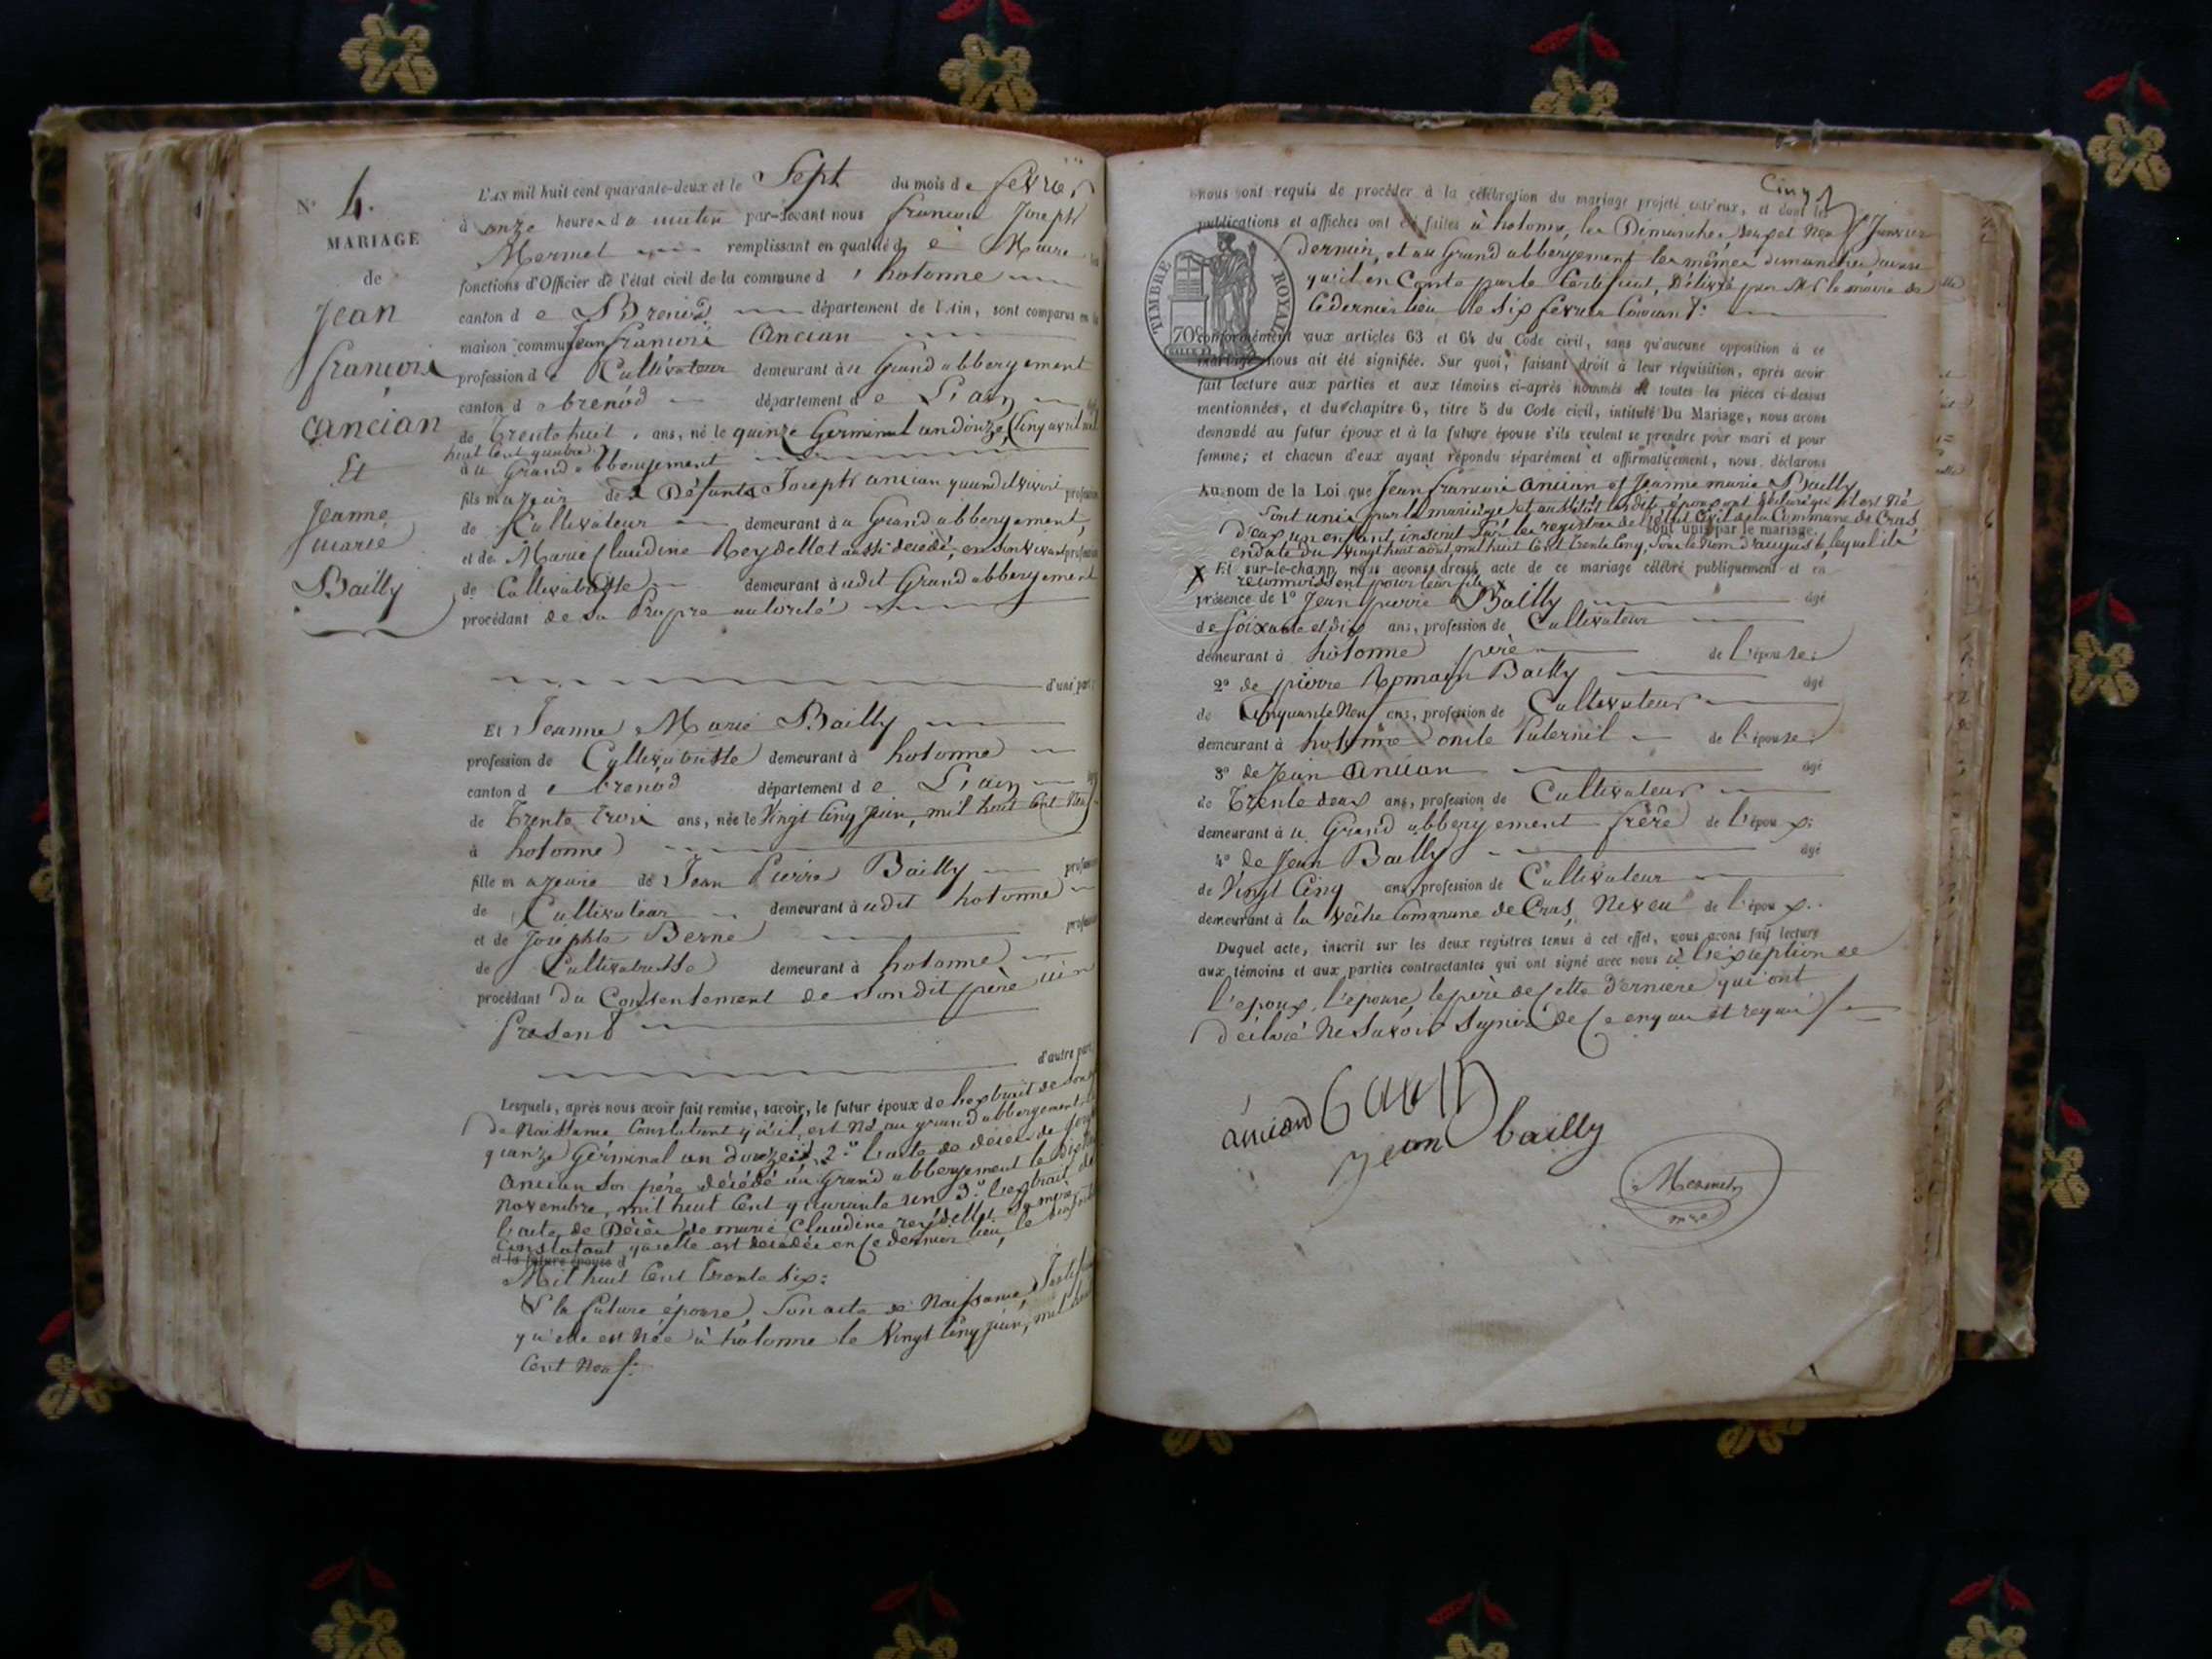 N° 4.
MARIAGE
de
Jean
françois
ancian
Et
Jeanne
marie
Bailly
L'AN mil huit cent quarante-deux et le Sept du mois de fevrier
à onze heures du matin par-devant nous francois Joseph
Mermet remplissant en qualité de Maire les
fonctions d'Officier de l'état civil de la commune d'hotonne
canton de Brenod département de l'Ain, sont comparus en la
maison commune Jean francois Ancian
profession de Cultivateur demeurant au Grand abbergement
canton de brenod département de L'ain
de Trente huit ans, né le quinze Germinal an douze, (Cinq avril mil
huit Cent quatre)
au Grand abbergement
fils majeur de Défunts Joseph ancian quand il vivoit profession
de Cultivateur demeurant au Grand abbergement,
et de Marie Claudine Reydellet aussi décédé, en son vivant profession
de Cultivatrisse demeurant audit Grand abbergement
procédant de sa Propre autorité
d'une part;
Et Jeanne Marie Bailly
profession de Cultivatrisse demeurant à hotonne
canton de brenod département de L'ain
de Trente trois ans, née le Vingt Cinq Juin, mil huit Cent Neuf
à hotonne
fille majeure de Jean Pierre Bailly profession
de Cultivateur demeurant audit hotonne
et de Josephte Berne profession
de Cultivatrisse demeurant à hotonne
procédant du Consentement de son dit père ici
Present
d'autre part
Lesquels, après nous avoir fait remise, savoir, le futur époux de l'extrait de son
de Naissance Constatant qu'il est né au grand abbergement le
quinze Germinal an douze, 2° l'acte de décès de Joseph
ancian son père décédé au Grand abbergement le
Novembre, mil huit Cent quarante un 3° l'extrait de
l'acte de Décès de marie Claudine reydellet sa mère
Constatant qu'elle est décédée en ce dernier lieu, le
et la future épouse d
Mil huit Cent Trente Six:
& la future épouse, son acte de Naissance
qu'elle est Née à hotonne le Vingt Cinq juin, mil huit
Cent Neuf.
Cinq
nous ont requis de procéder à la célébration du mariage projeté entr'eux, et dont les
publications et affiches ont été faites à hotonne, les Dimanches Janvier
dernier, et au Grand abbergement les mêmes dimanches
qu'il en Conste par le Certificat, Délivré par Mr le maire de
ce dernier lieu le Six fevrier Courant:
TIMBRE ROYAL
70c
conformément aux articles 63 et 64 du Code civil, sans qu'aucune opposition à ce
mariage nous ait été signifiée. Sur quoi, faisant droit à leur réquisition, après avoir
fait lecture aux parties et aux témoins ci-après nommés de toutes les pièces ci-dessus
mentionnées, et du chapitre 6, titre 5 du Code civil, intitulé Du Mariage, nous avons
demandé au futur époux et à la future épouse s'ils veulent se prendre pour mari et pour
femme; et chacun d'eux ayant répondu séparément et affirmativement, nous déclarons
Au nom de la Loi que Jean francois ancian et Jeanne marie Bailly
sont unis par le mariage et aussitôt lesdits époux ont déclaré qu'il est Né
d'eux un enfant inscrit Sur les registres de l'état Civil de la Commune de Cras,
sont unis par le mariage.
en date du Vingt huit aout, mil huit Cent trente Cinq, sous le Nom d'auguste, lequel ils
X Et sur-le-champ, nous avons dressé acte de ce mariage célébré publiquement et en
reconnoissent pour leur fils X
présence de 1° Jean pierre Bailly âgé
de soixante et dix ans, profession de Cultivateur
demeurant à hotonne père de l'épouse;
2° de pierre Romain Bailly âgé
de Cinquante Neuf ans, profession de Cultivateur
demeurant à hotonne oncle Paternel de l'épouse;
3° de Jean Ancian âgé
de Trente deux ans, profession de Cultivateur
demeurant au Grand abbergement frère de l'époux;
4° de Jean Bailly âgé
de Vingt Cinq ans, profession de Cultivateur
demeurant à la Commune de Cras, Neveu de l'époux.
Duquel acte, inscrit sur les deux registres tenus à cet effet, nous avons fait lecture
aux témoins et aux parties contractantes qui ont signé avec nous à l'exception de
l'époux, l'épouse, le père de Cette dernière qui ont
déclaré Ne Savoir Signer de Ce enquis et requis
anciand
Jean bailly
Mermet
mre